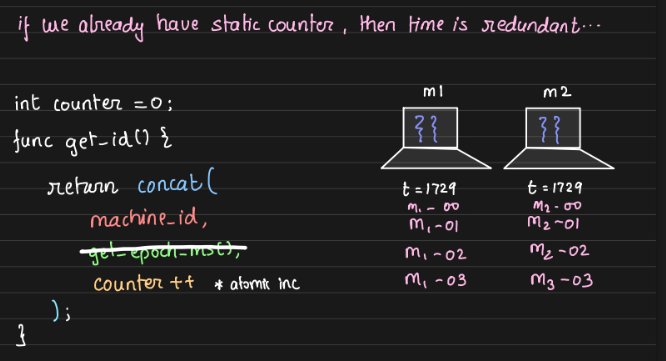 if we already have static counter, then time is redundant...
int counter = 0;
func get_id() {
return concat(
machine_id,
get_epoch_ms(),
counter ++ * atomic inc
);
}
m1 m2
{ } { }
t = 1729 t = 1729
m₁ - 00 m₂ - 00
m₁ - 01 m₂ - 01
m₁ - 02 m₂ - 02
m₁ - 03 m₃ - 03